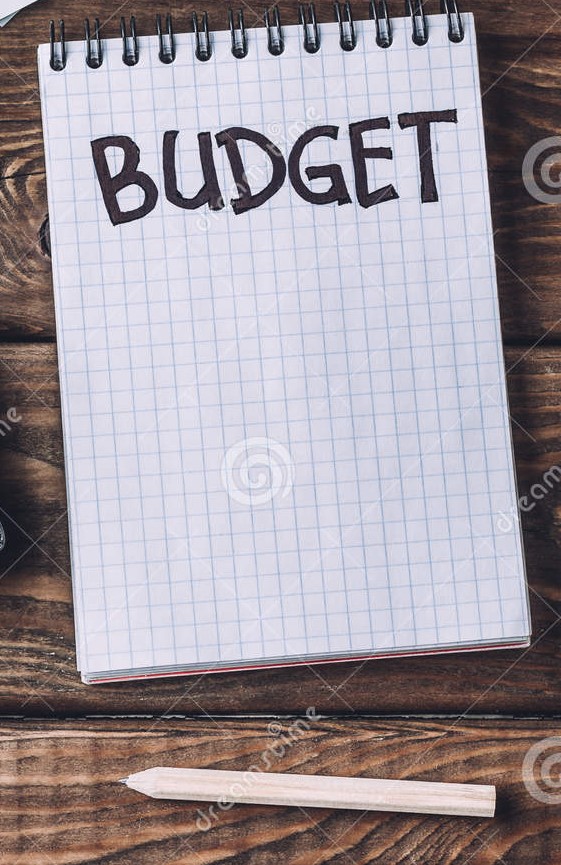 BUDGET
dreamstime
dreamstime
dream